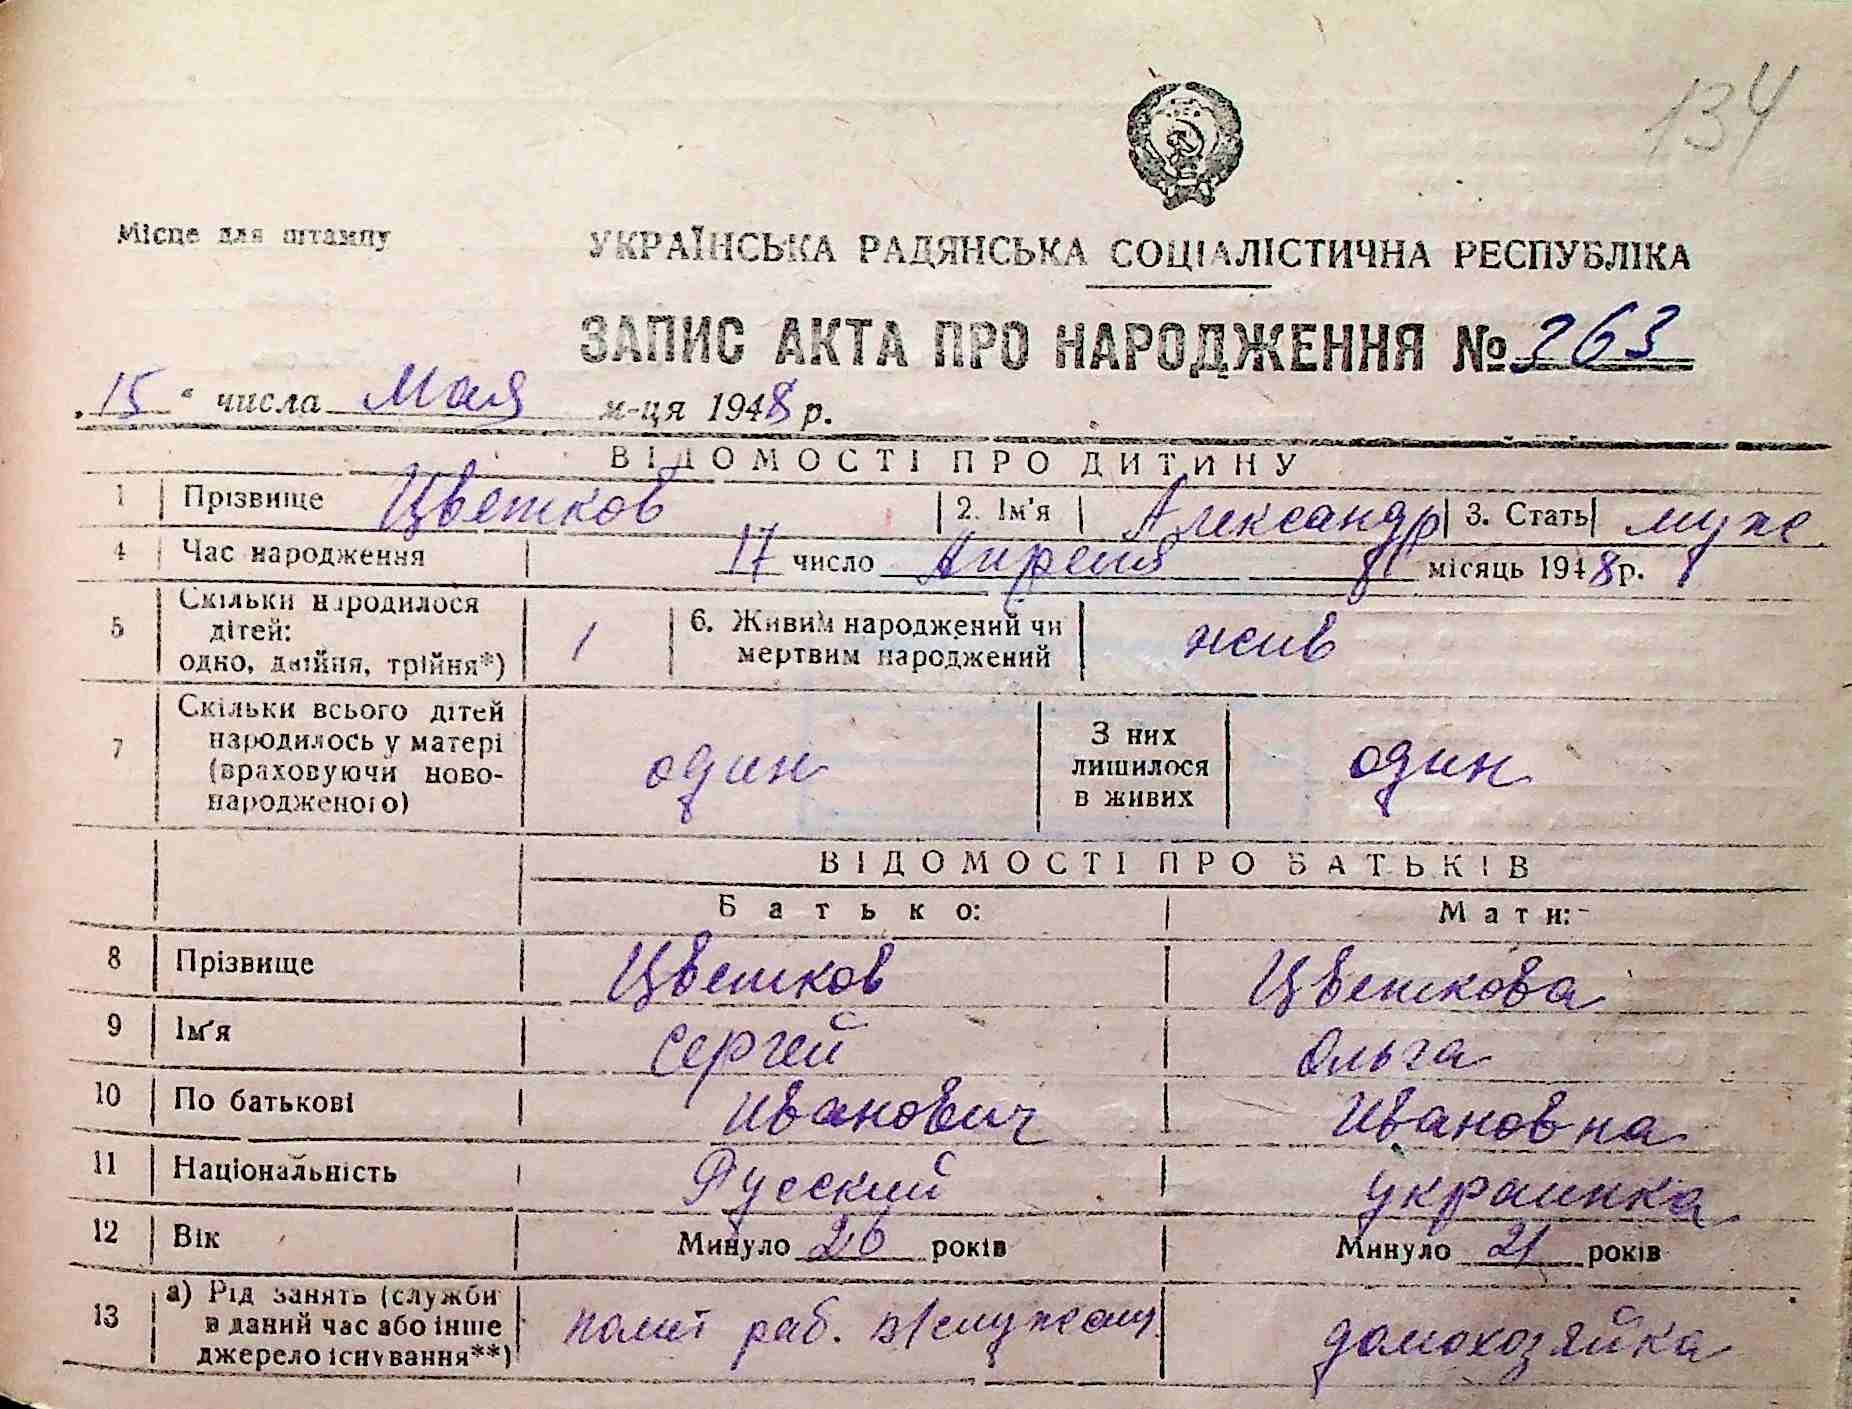 134
Місце для штампу
УКРАЇНСЬКА РАДЯНСЬКА СОЦІАЛІСТИЧНА РЕСПУБЛІКА
ЗАПИС АКТА ПРО НАРОДЖЕННЯ № 263
"15" числа Мая м-ця 1948 р.
ВІДОМОСТІ ПРО ДИТИНУ
1 Прізвище Цветков 2. Ім'я Александр 3. Стать муж.
4 Час народження 17 число Апреля місяць 1948 р.
5 Скільки народилося дітей: одно, двійня, трійня*) 1 6. Живим народжений чи мертвим народжений жив
7 Скільки всього дітей народилось у матері (враховуючи ново-народженого) один З них лишилося в живих один
ВІДОМОСТІ ПРО БАТЬКІВ
Батько: Мати:
8 Прізвище Цветков Цветкова
9 Ім'я Сергей Ольга
10 По батькові Иванович Ивановна
11 Національність Русский украинка
12 Вік Минуло 26 років Минуло 21 років
13 а) Рід занять (служби в даний час або інше джерело існування**) полит раб. в/служащ. домохозяйка